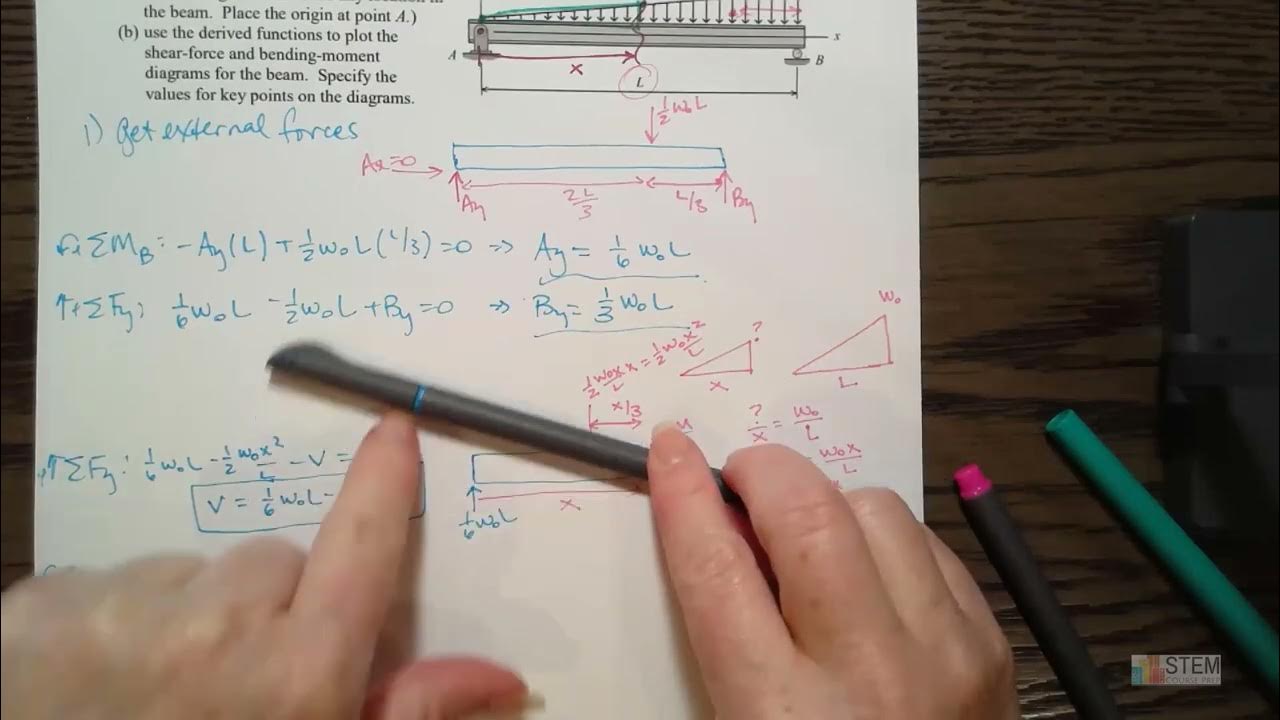 the beam. Place the origin at point A.)
(b) use the derived functions to plot the
shear-force and bending-moment
diagrams for the beam. Specify the
values for key points on the diagrams.
A
x
L
x
B
1) get external forces
½ w₀L
Ax=0
Ay
2L/3
L/3
By
ΣM_B: -Ay(L) + ½w₀L(L/3) = 0 => Ay = 1/6 w₀L
↑+ΣFy: 1/6 w₀L - ½w₀L + By = 0 => By = 1/3 w₀L
½ w₀x/L x = ½ w₀x²/L
?
x
w₀
L
x/3
?/x = w₀/L
w₀x/L
↑ΣFy: 1/6 w₀L - ½ w₀x²/L - V =
V = 1/6 w₀L -
1/6 w₀L
x
STEM
COURSE PREP